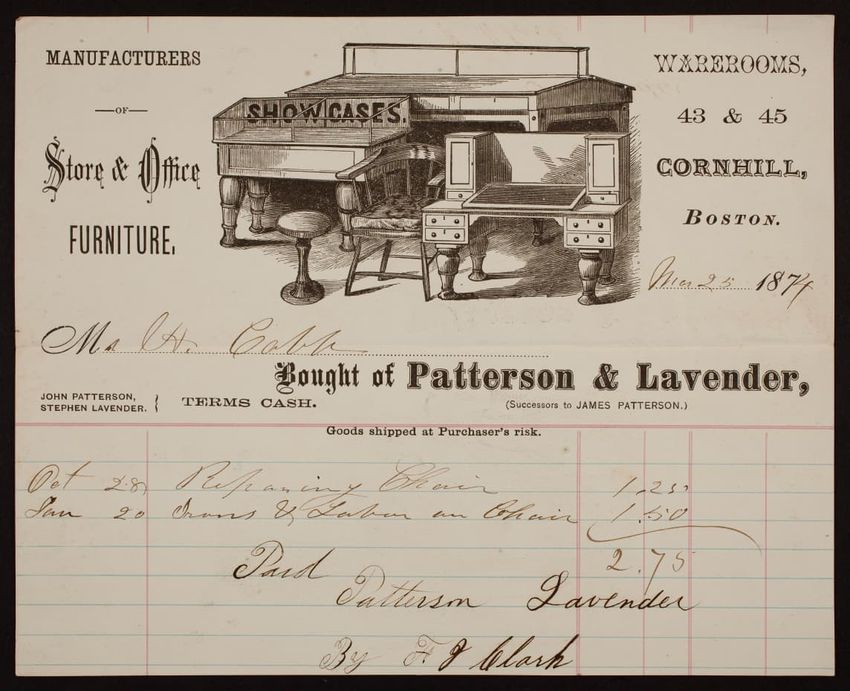 MANUFACTURERS
—OF—
Store & Office
FURNITURE,
SHOW CASES.
WAREROOMS,
43 & 45
CORNHILL,
BOSTON.
Mar 25 1874
M H. Cobb
Bought of Patterson & Lavender,
JOHN PATTERSON,
STEPHEN LAVENDER.
TERMS CASH.
(Successors to JAMES PATTERSON.)
Goods shipped at Purchaser's risk.
Oct 28 Repairing Chair 1.25
Jan 20 Irons & Labor on Chair 1.50
2.75
Paid
Patterson Lavender
By F J Clark